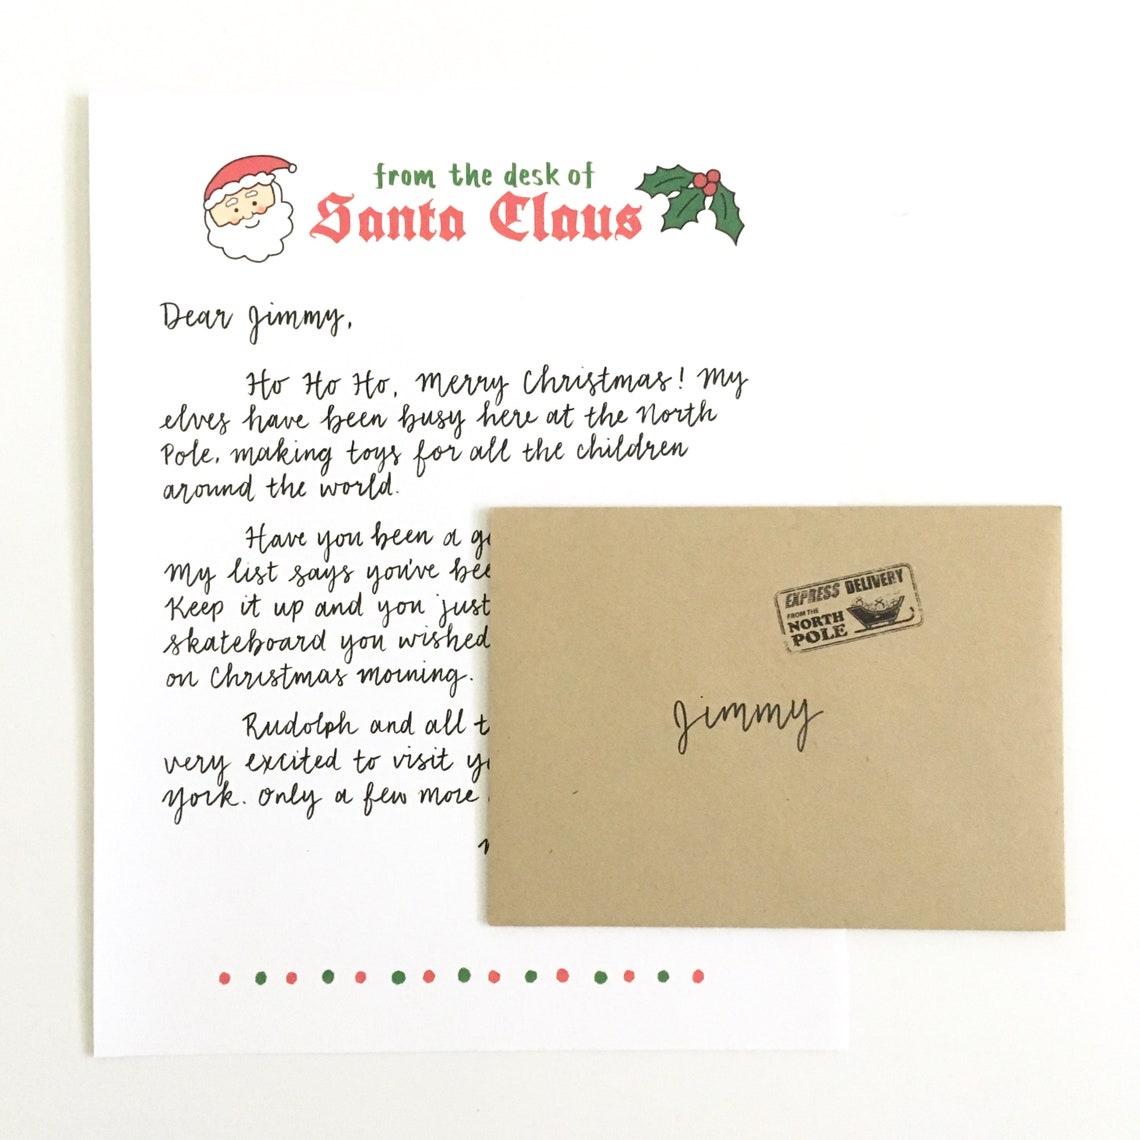 from the desk of
Santa Claus
Dear Jimmy,
Ho Ho Ho, Merry Christmas! My
elves have been busy here at the North
Pole, making toys for all the children
around the world.
Have you been a
My list says you've
Keep it up and you just
skateboard you wished
on Christmas morning.
Rudolph and all
very excited to visit
York. Only a few more
EXPRESS DELIVERY
FROM THE
NORTH
POLE
Jimmy